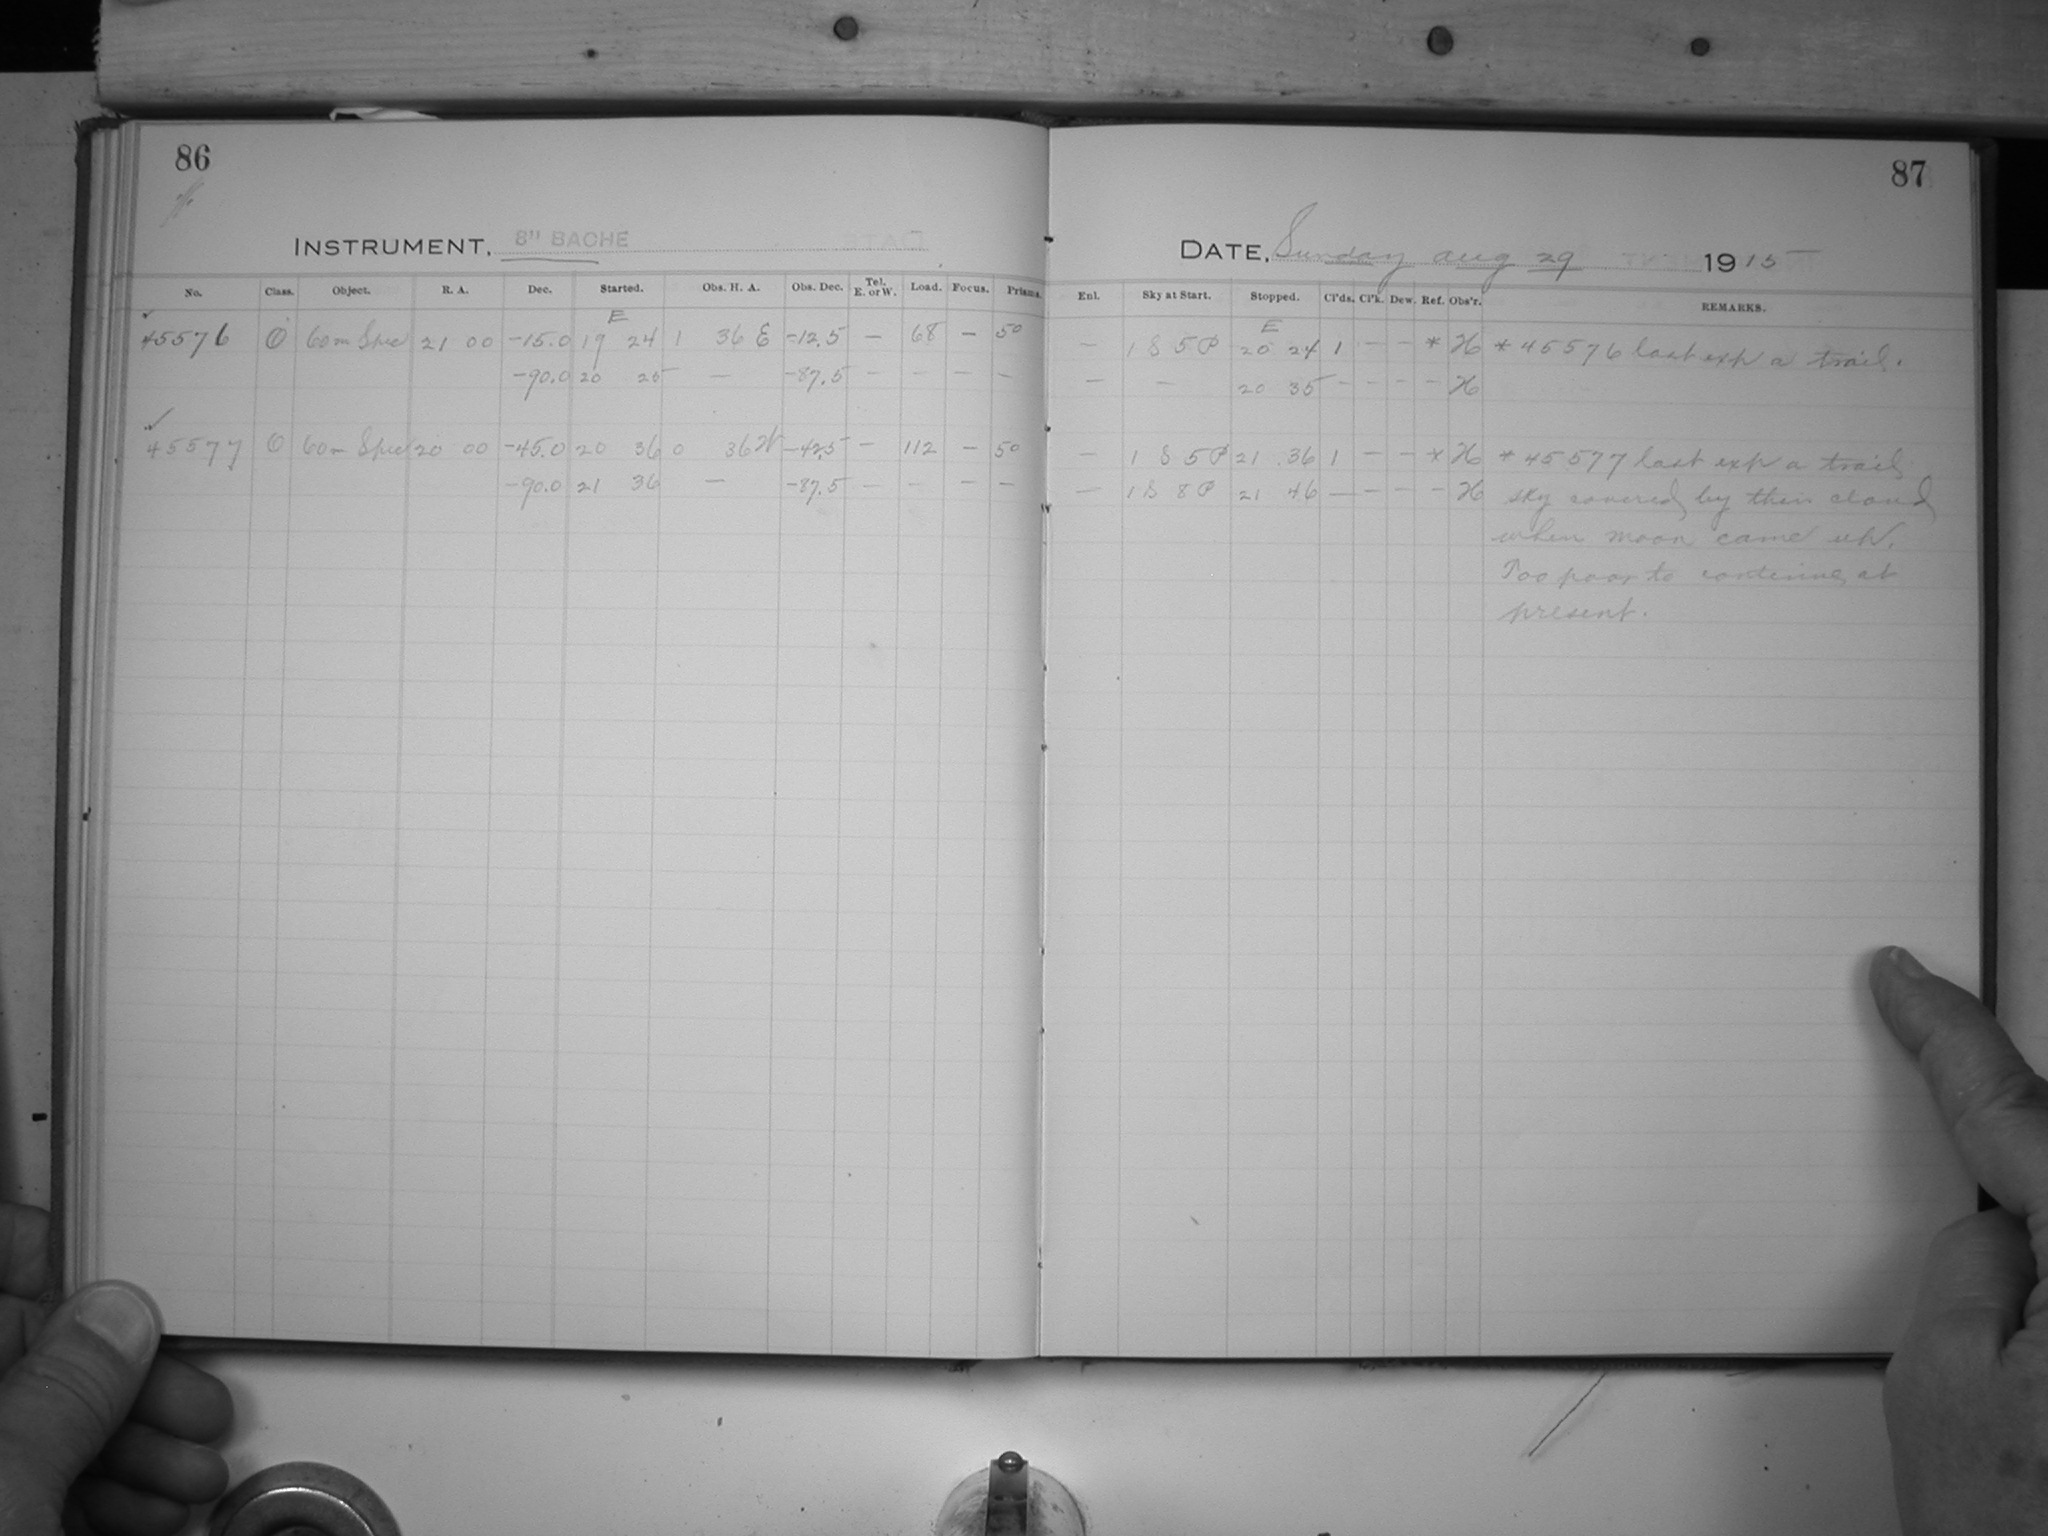 86
INSTRUMENT, 8" BACHE
No. Class. Object. R. A. Dec. Started. Obs. H. A. Obs. Dec. Tel. E. or W. Load. Focus. Prisms.
E
45576 O 60m Spec 21 00 -15.0 19 24 1 36 E -12.5 — 68 — 50
-90.0 20 25 — -87.5 — — — —
45577 O 60m Spec 20 00 -45.0 20 36 0 36 W -42.5 — 112 — 50
-90.0 21 36 — -87.5 — — — —
87
DATE, Sunday Aug 29 1915
Enl. Sky at Start. Stopped. Cl'ds. Cl'k. Dew. Ref. Obs'r. REMARKS.
E
— 1 S 5 P 20 24 1 — — * H * 45576 last exp a trail.
— — 20 35 — — — — H
— 1 S 5 P 21 36 1 — — * H * 45577 last exp a trail
— 1 S 8 P 21 46 — — — — H sky covered by thin cloud
when moon came up.
Too poor to continue at
present.